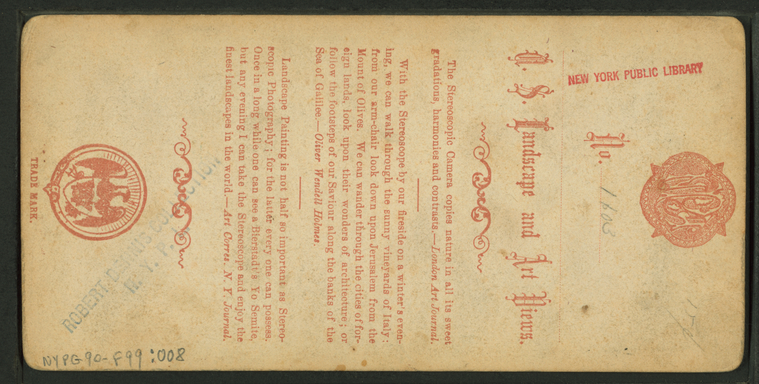 NEW YORK PUBLIC LIBRARY
No. 1805
U. S. Landscape and Art Views.
The Stereoscopic Camera copies nature in all its sweet
gradations, harmonies and contrasts.—London Art Journal.
With the Stereoscope by our fireside on a winter's even-
ing, we can walk through the sunny vineyards of Italy:
from our arm-chair look down upon Jerusalem from the
Mount of Olives. We can wander through the cities of for-
eign lands, look upon their wonders of architecture; or
follow the footsteps of our Saviour along the banks of the
Sea of Galilee.—Oliver Wendell Holmes.
Landscape Painting is not half so important as Stereo-
scopic Photography; for the latter every one can possess.
Once in a long while one can see a Bierstadt's Yo Semite,
but any evening I can take the Stereoscope and enjoy the
finest landscapes in the world.—Art Corres. N. Y. Journal.
TRADE MARK.
ROBERT COLLECTION
N. Y. P.
NYPG90-F99:008